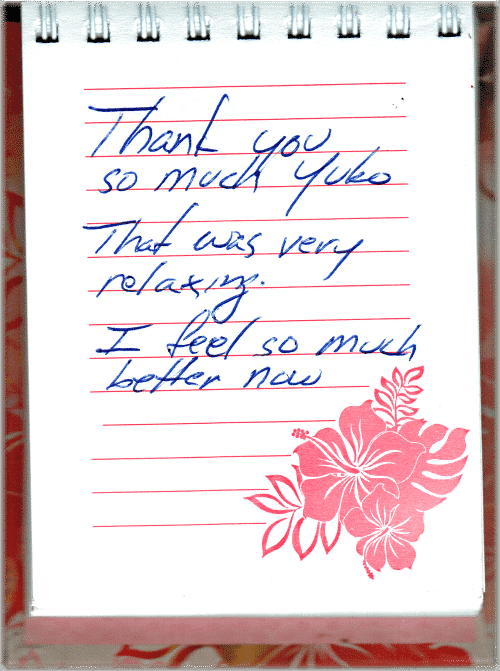 Thank you
so much Yuko
That was very
relaxing.
I feel so much
better now